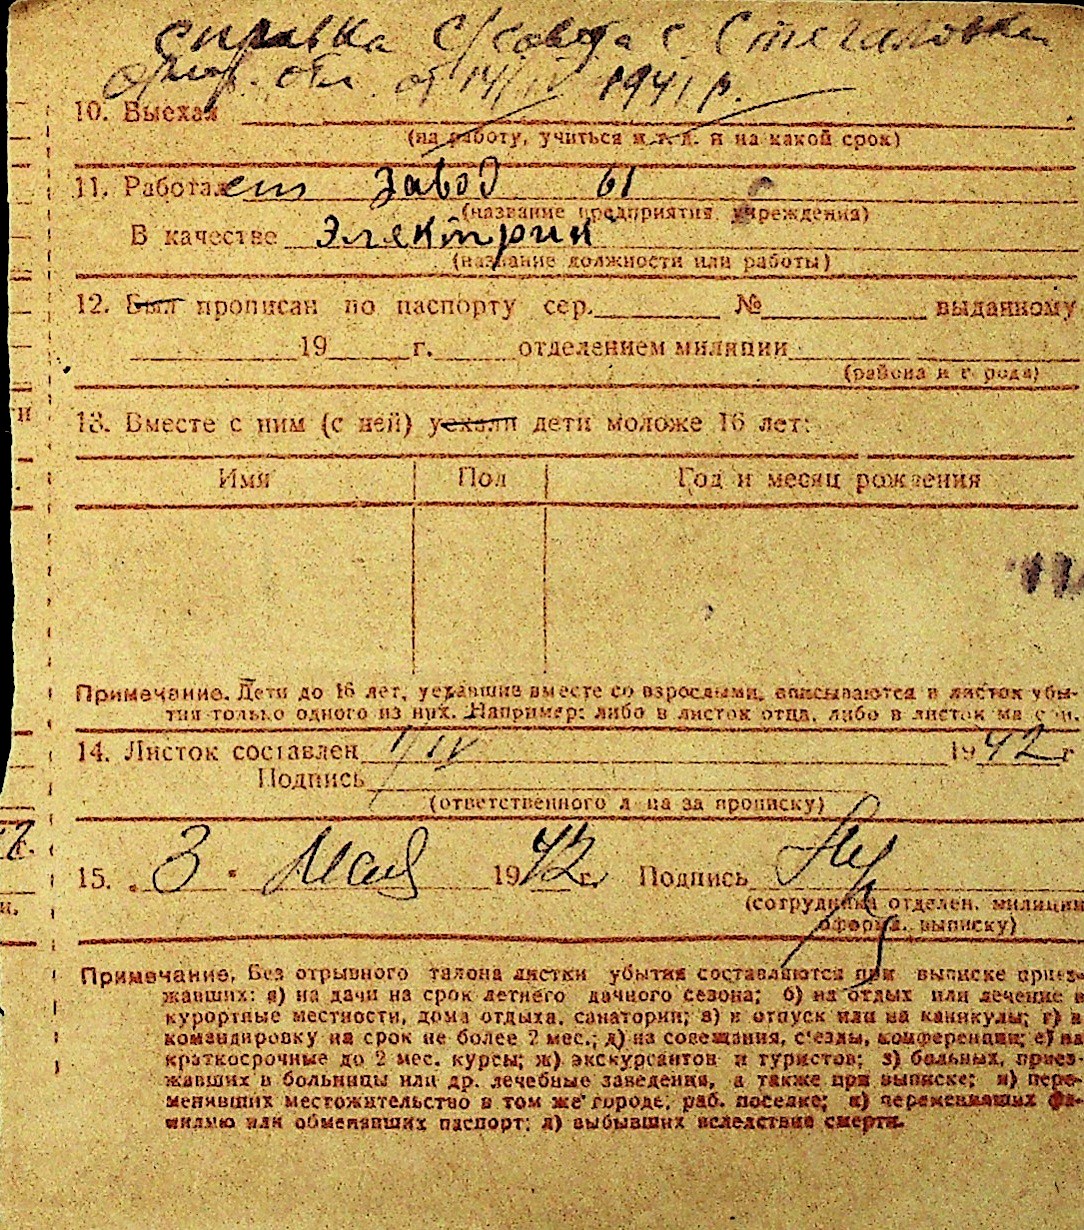 справка с/совета с. Стегаловка
Орлов. обл. от 14/IV 1941 г.
10. Выехал
(на работу, учиться и т. д. и на какой срок)
11. Работает завод 61
(название предприятия, учреждения)
В качестве Электрик
(название должности или работы)
12. Был прописан по паспорту сер. № выданному
19 г. отделением милиции
(района и города)
13. Вместе с ним (с ней) уехали дети моложе 16 лет:
Имя Пол Год и месяц рождения
Примечание. Дети до 16 лет, уехавшие вместе со взрослыми, вписываются в листок убы-
тия только одного из них. Например: либо в листок отца, либо в листок матери.
14. Листок составлен 1/IV 1942 г
Подпись
(ответственного лица за прописку)
15. „3" Мая 1942 г. Подпись
(сотрудника отделен. милиции
оформ. выписку)
Примечание. Без отрывного талона листки убытия составляются при выписке приез-
жавших: а) на дачи на срок летнего дачного сезона; б) на отдых или лечение в
курортные местности, дома отдыха, санатории; в) в отпуск или на каникулы; г) в
командировку на срок не более 2 мес.; д) на совещания, с'езды, конференции; е) на
краткосрочные до 2 мес. курсы; ж) экскурсантов и туристов; з) больных, приез-
жавших в больницы или др. лечебные заведения, а также при выписке; и) пере-
менивших местожительство в том же городе, раб. поселке; к) переменивших фа-
милию или обменявших паспорт; л) выбывших вследствие смерти.